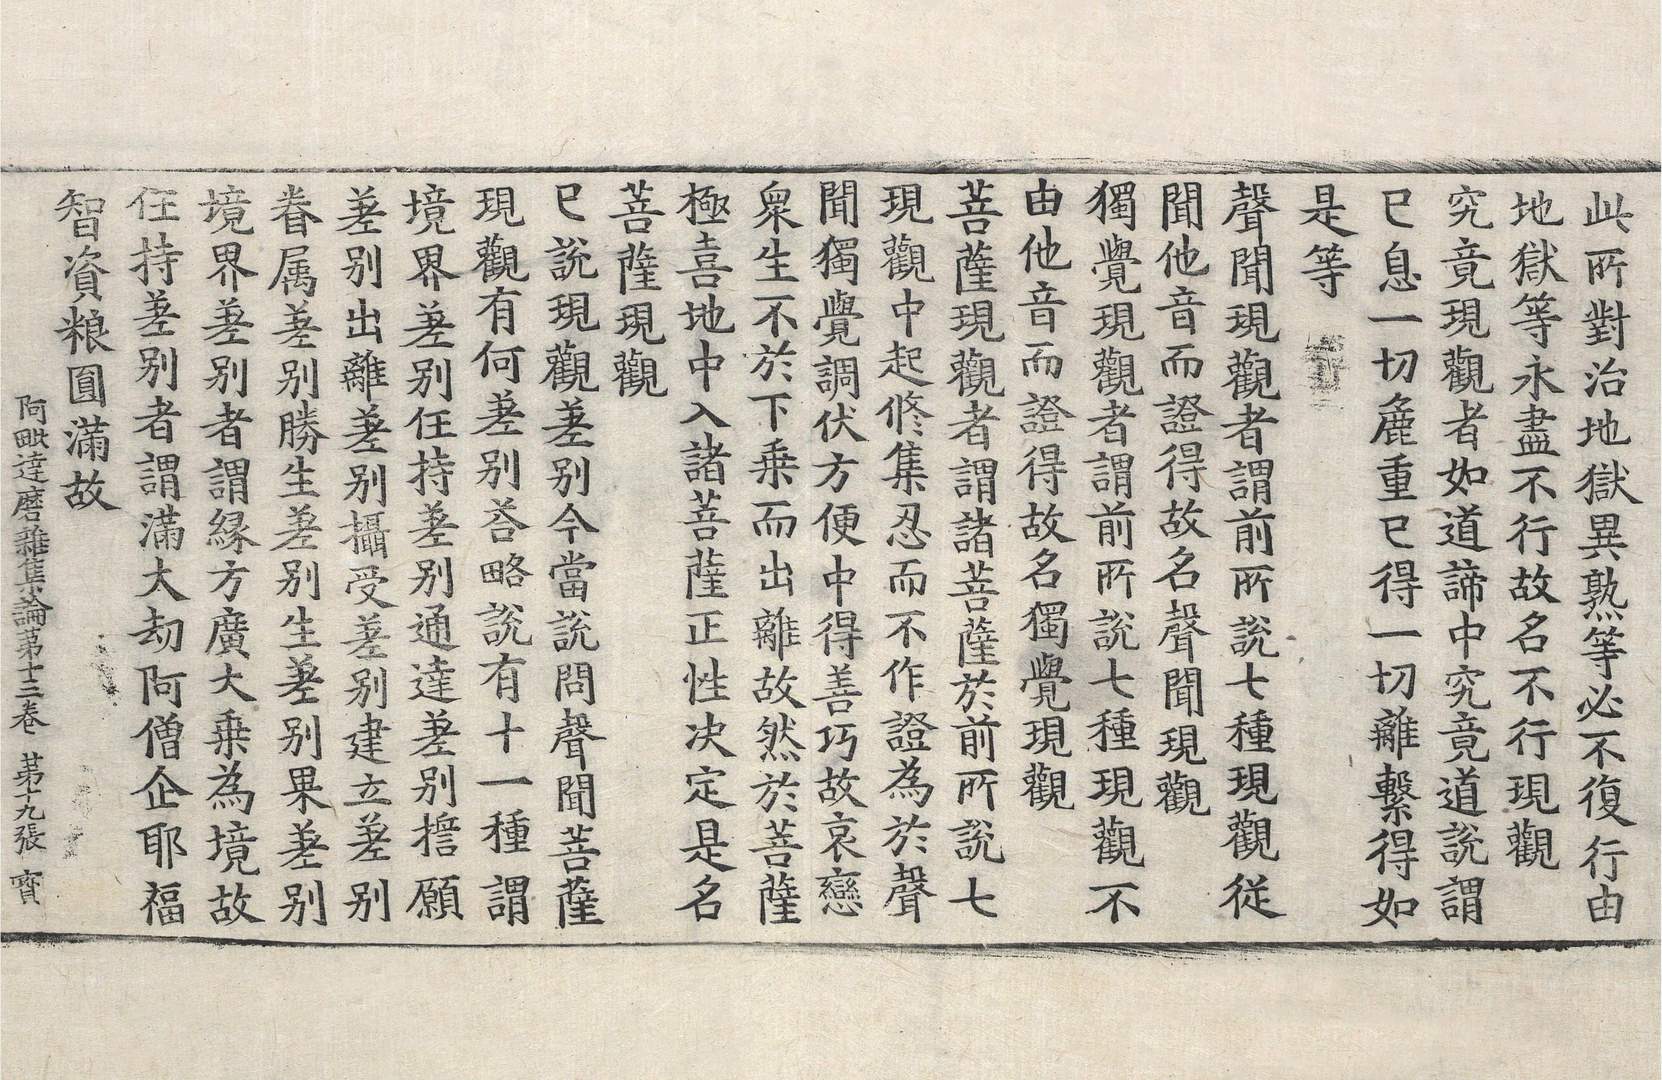 此所對治地獄異熟等必不復行由
地獄等永盡不行故名不行現觀
究竟現觀者如道諦中究竟道說謂
已息一切麁重已得一切離繫得如
是等
聲聞現觀者謂前所說七種現觀從
聞他音而證得故名聲聞現觀
獨覺現觀者謂前所說七種現觀不
由他音而證得故名獨覺現觀
菩薩現觀者謂諸菩薩於前所說七
現觀中起修集忍而不作證為於聲
聞獨覺調伏方便中得善巧故哀戀
衆生不於下乗而出離故然於菩薩
極喜地中入諸菩薩正性決定是名
菩薩現觀
已說現觀差别今當說問聲聞菩薩
現觀有何差别荅略說有十一種謂
境界差别任持差别通達差别擔願
差别出離差别攝受差别建立差别
眷属差别勝生差别生差别果差别
境界差别者謂緣方廣大乗為境故
任持差别者謂滿大劫阿僧企耶福
智資粮圓滿故
阿毗達磨雜集論第十三卷 第十九張 寶